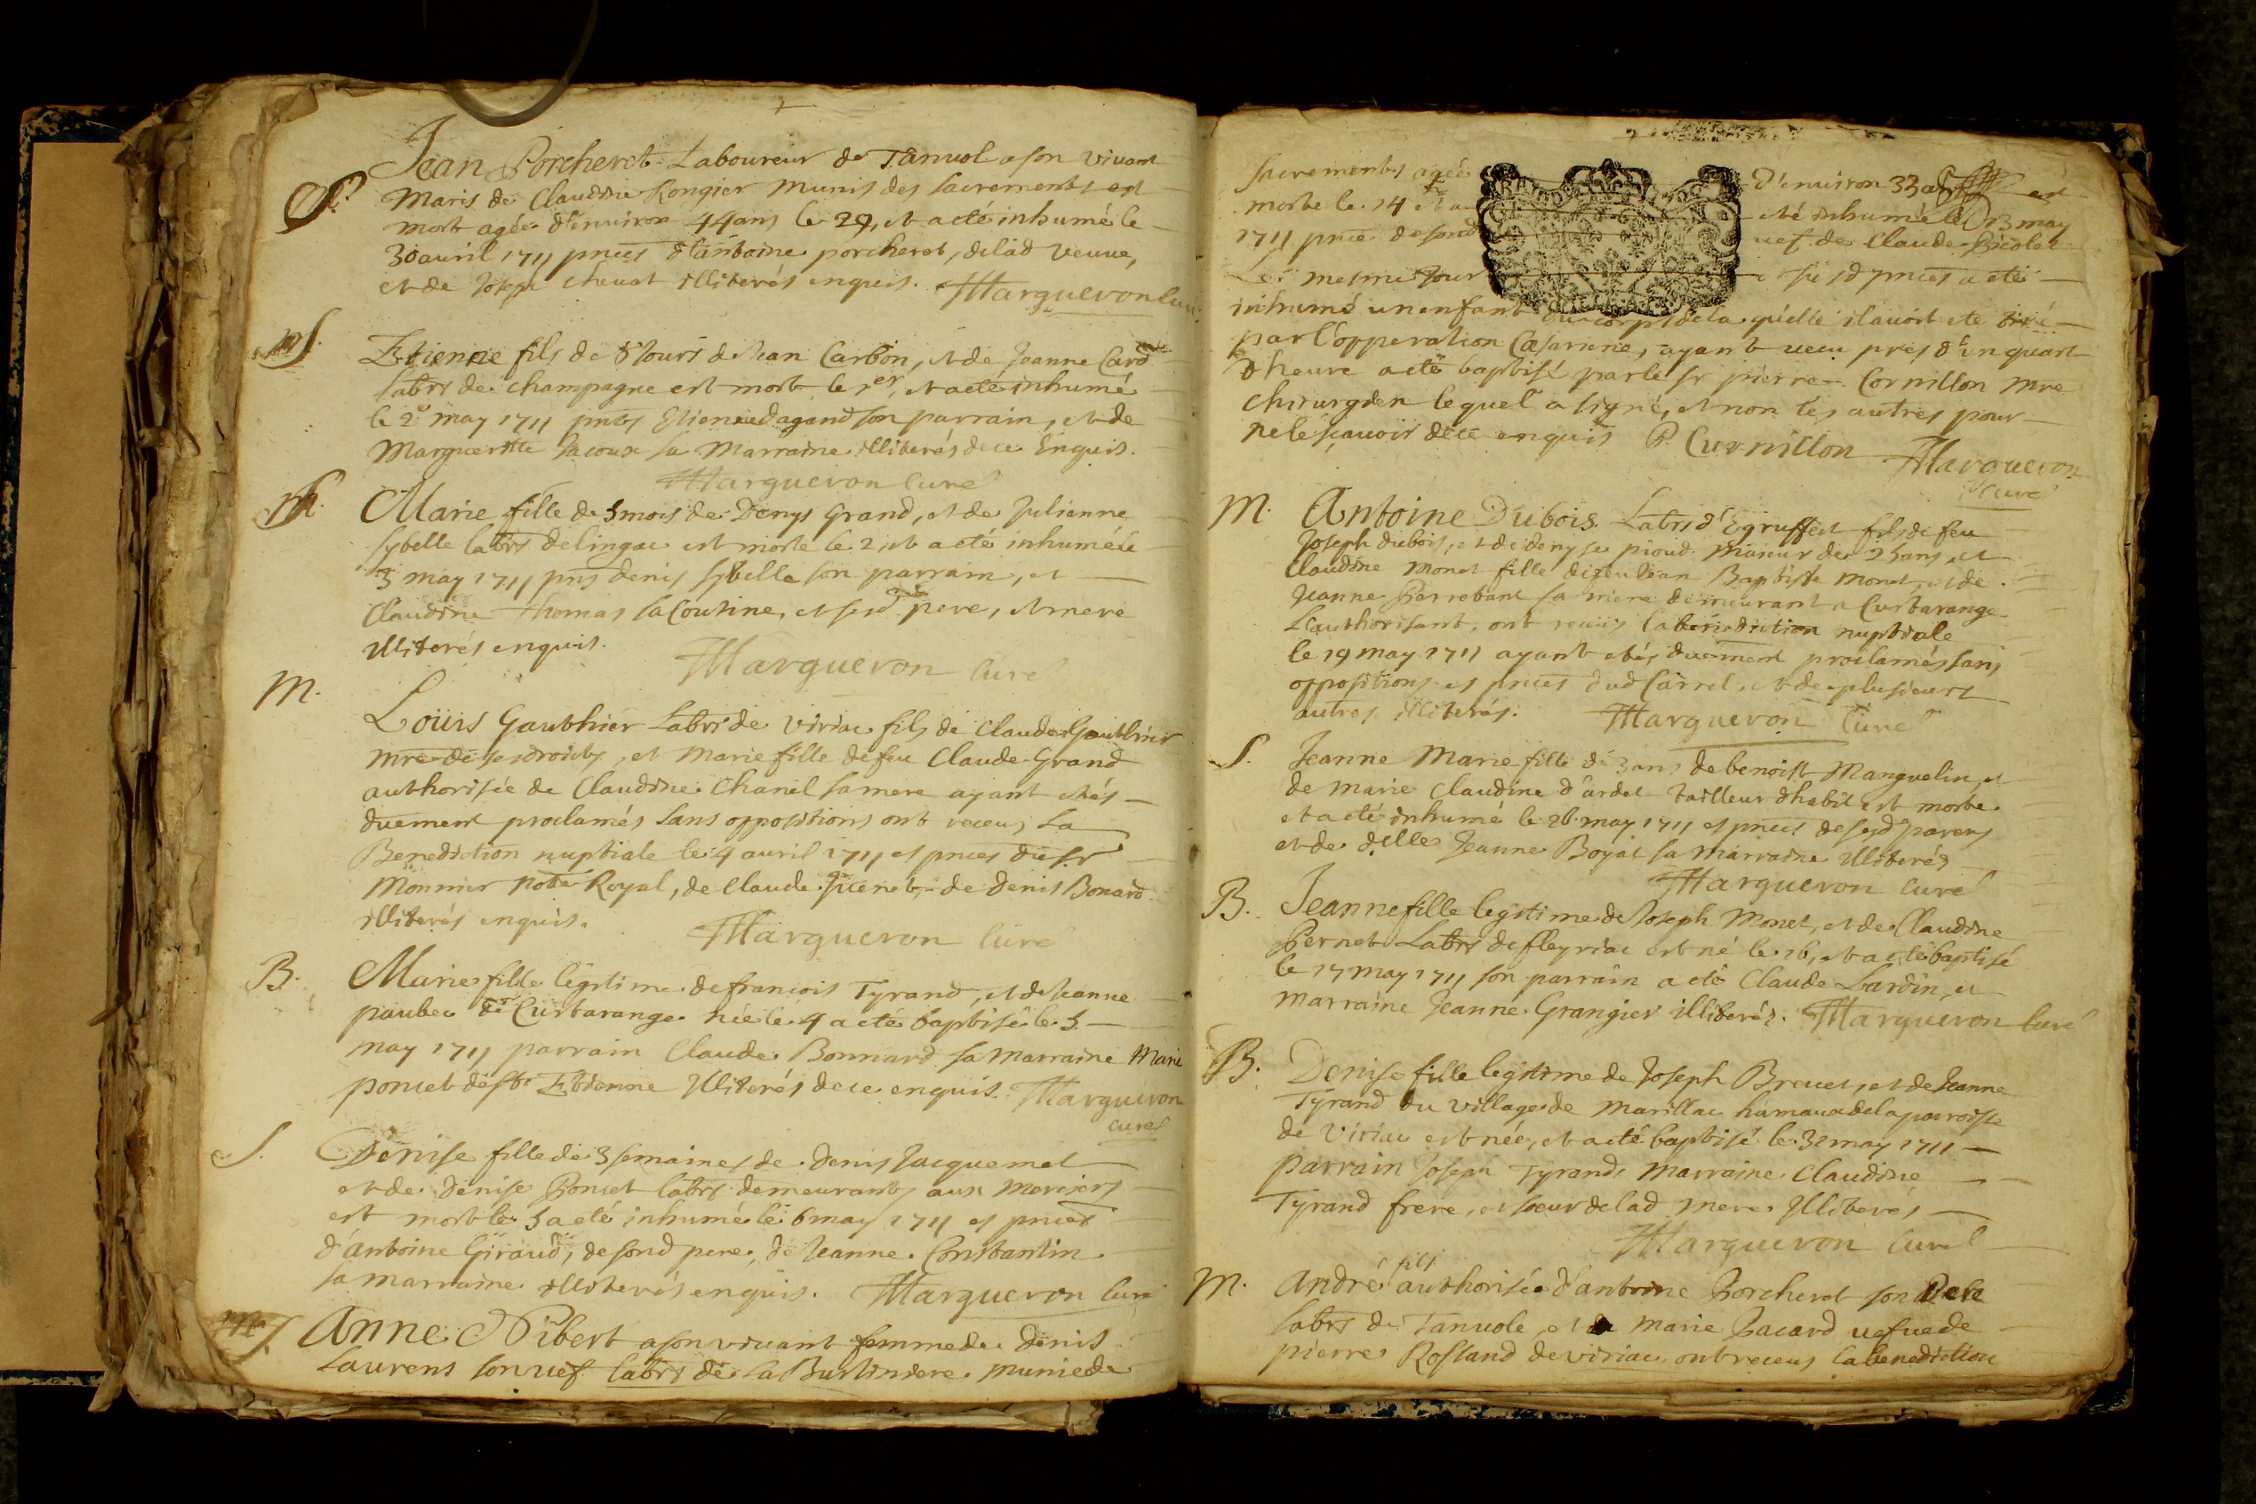 Jean Porcheret Laboureur de Tanuol a son vivant
S. Maris de Claudine Rongier Munis des sacrements est
mort agée d'environ 44 ans le 29, et a eté inhumé le
30 avril 1711 pnces d'antoine porcheret, de lad veuve,
et de Joseph chevat illiterés enquis. Marguevon Curé
S. Etienne fils de 8 Jours de Jean Carbon, et de Jeanne
labrs de champagne est mort le 1er, et a eté inhumé
le 2e may 1711 pnces Etienne dagand son parrain, et de
Marguerite Jacoux sa Marraine illiterés de ce Enquis.
Marguevon Curé
Marie fille de 3 mois de Denys Grand, et de Julienne
sybelle labrs de lingac est morte le 2 et a eté inhumée le
3 may 1711 pns denis sybelle son parrain, et
Claudine Thomas sa Cousine, et sesd pere, et mere
illiterés enquis.
Marguevon Curé
M.
Loüis Gauthier Labrs de viriac fils de Claude Gauthier
mre de ses droits, et Marie fille de feu Claude Grand
authorisée de Claudine Chanel sa mere ayant etés
duement proclamés sans oppositions ont receus La
Benediction nuptiale le 4 avril 1711 es pnces du sr
Monnier notre Royal, de Claude, de Denis Bonard
illiterés enquis.
Marguevon Curé
B. Marie fille legitime de francois Tyrand, et de Jeanne
paubec de Curtarange née le 4 a eté baptisé le 5
may 1711 parrain Claude Bonnard sa marraine Marie
poncet de st Etienne Illiterés de ce enquis. Marguevon
curé
S. Denise fille de 3 semaines de Denis Jacquemet
et de Denise Poncet labrs demeurants aux merciers
est mort le 5 a eté inhumé le 6 may 1711 es pnces
d'antoine Giraud, de sond pere, de Jeanne Constantin
sa marraine illiterés enquis. Marguevon Curé
S. Anne Nibert a son vivant femme de Denis
Laurens son vef labrs de La Burtiniere munie de
sacrements agée d'environ 33 ans est
morte le 14 et a eté inhumé le 15 may
1711 pnce de sond vef de Claude
Le mesme Jour es susd pnces a eté
inhumé un enfant du corps de la quelle il avoit ete tiré
par l'opperation Cæsariene, ayant vecu pres d'un quart
d'heure a eté baptisé par le sr pierre Cornillon mre
chirurgien lequel a signé, et non les autres pour
ne le sçavoir de ce enquis P. Curnillon Marguevon
Curé
M. Antoine Dubois Labrs d'Egruffeit fils de feu
Joseph dubois, et de denyse pioud Maieur de 25 ans, et
Claudine Monet fille de feu Jean Baptiste Monet, et de
Jeanne Perrobant sa mere demeurant a Curtarange
L'authorisant, ont receus la benediction nuptiale
le 19 may 1711 ayant etés duement proclamés sans
oppositions es pnces dud Carrel et de plusieurs
autres illiterés. Marguevon Curé
S. Jeanne Marie fille de 3 ans de benoist Manguelin, et
de marie Claudine d'ardet Tailleur d'habit est morte
et a eté inhumé le 26 may 1711 es pnces de sesd parens
et de delle Jeanne Boyat sa marraine Illiterés
Marguevon Curé
B. Jeanne fille legitime de Joseph Monet, et de Claudine
Pernet Labrs de fleyriac est né le 16, et a eté baptisé
le 17 may 1711 son parrain a eté Claude Lardin, et
marraine Jeanne Grangier illiterés. Marguevon Curé
B. Denise fille legitime de Joseph Brevet, et de Jeanne
Tyrand du village de Marillac hameau de la parroisse
de Viriac est née, et a eté baptisé le 3e may 1711
parrain Joseph Tyrand Marraine Claudine
Tyrand frere, et soeur de lad mere Illiterés
Marguevon Curé
M. André fils authorisée d'antoine Porcheret son Pere
labrs de Tanuole, et Marie Pacard vefve de
pierre Rosland de viriac ont receus la benediction